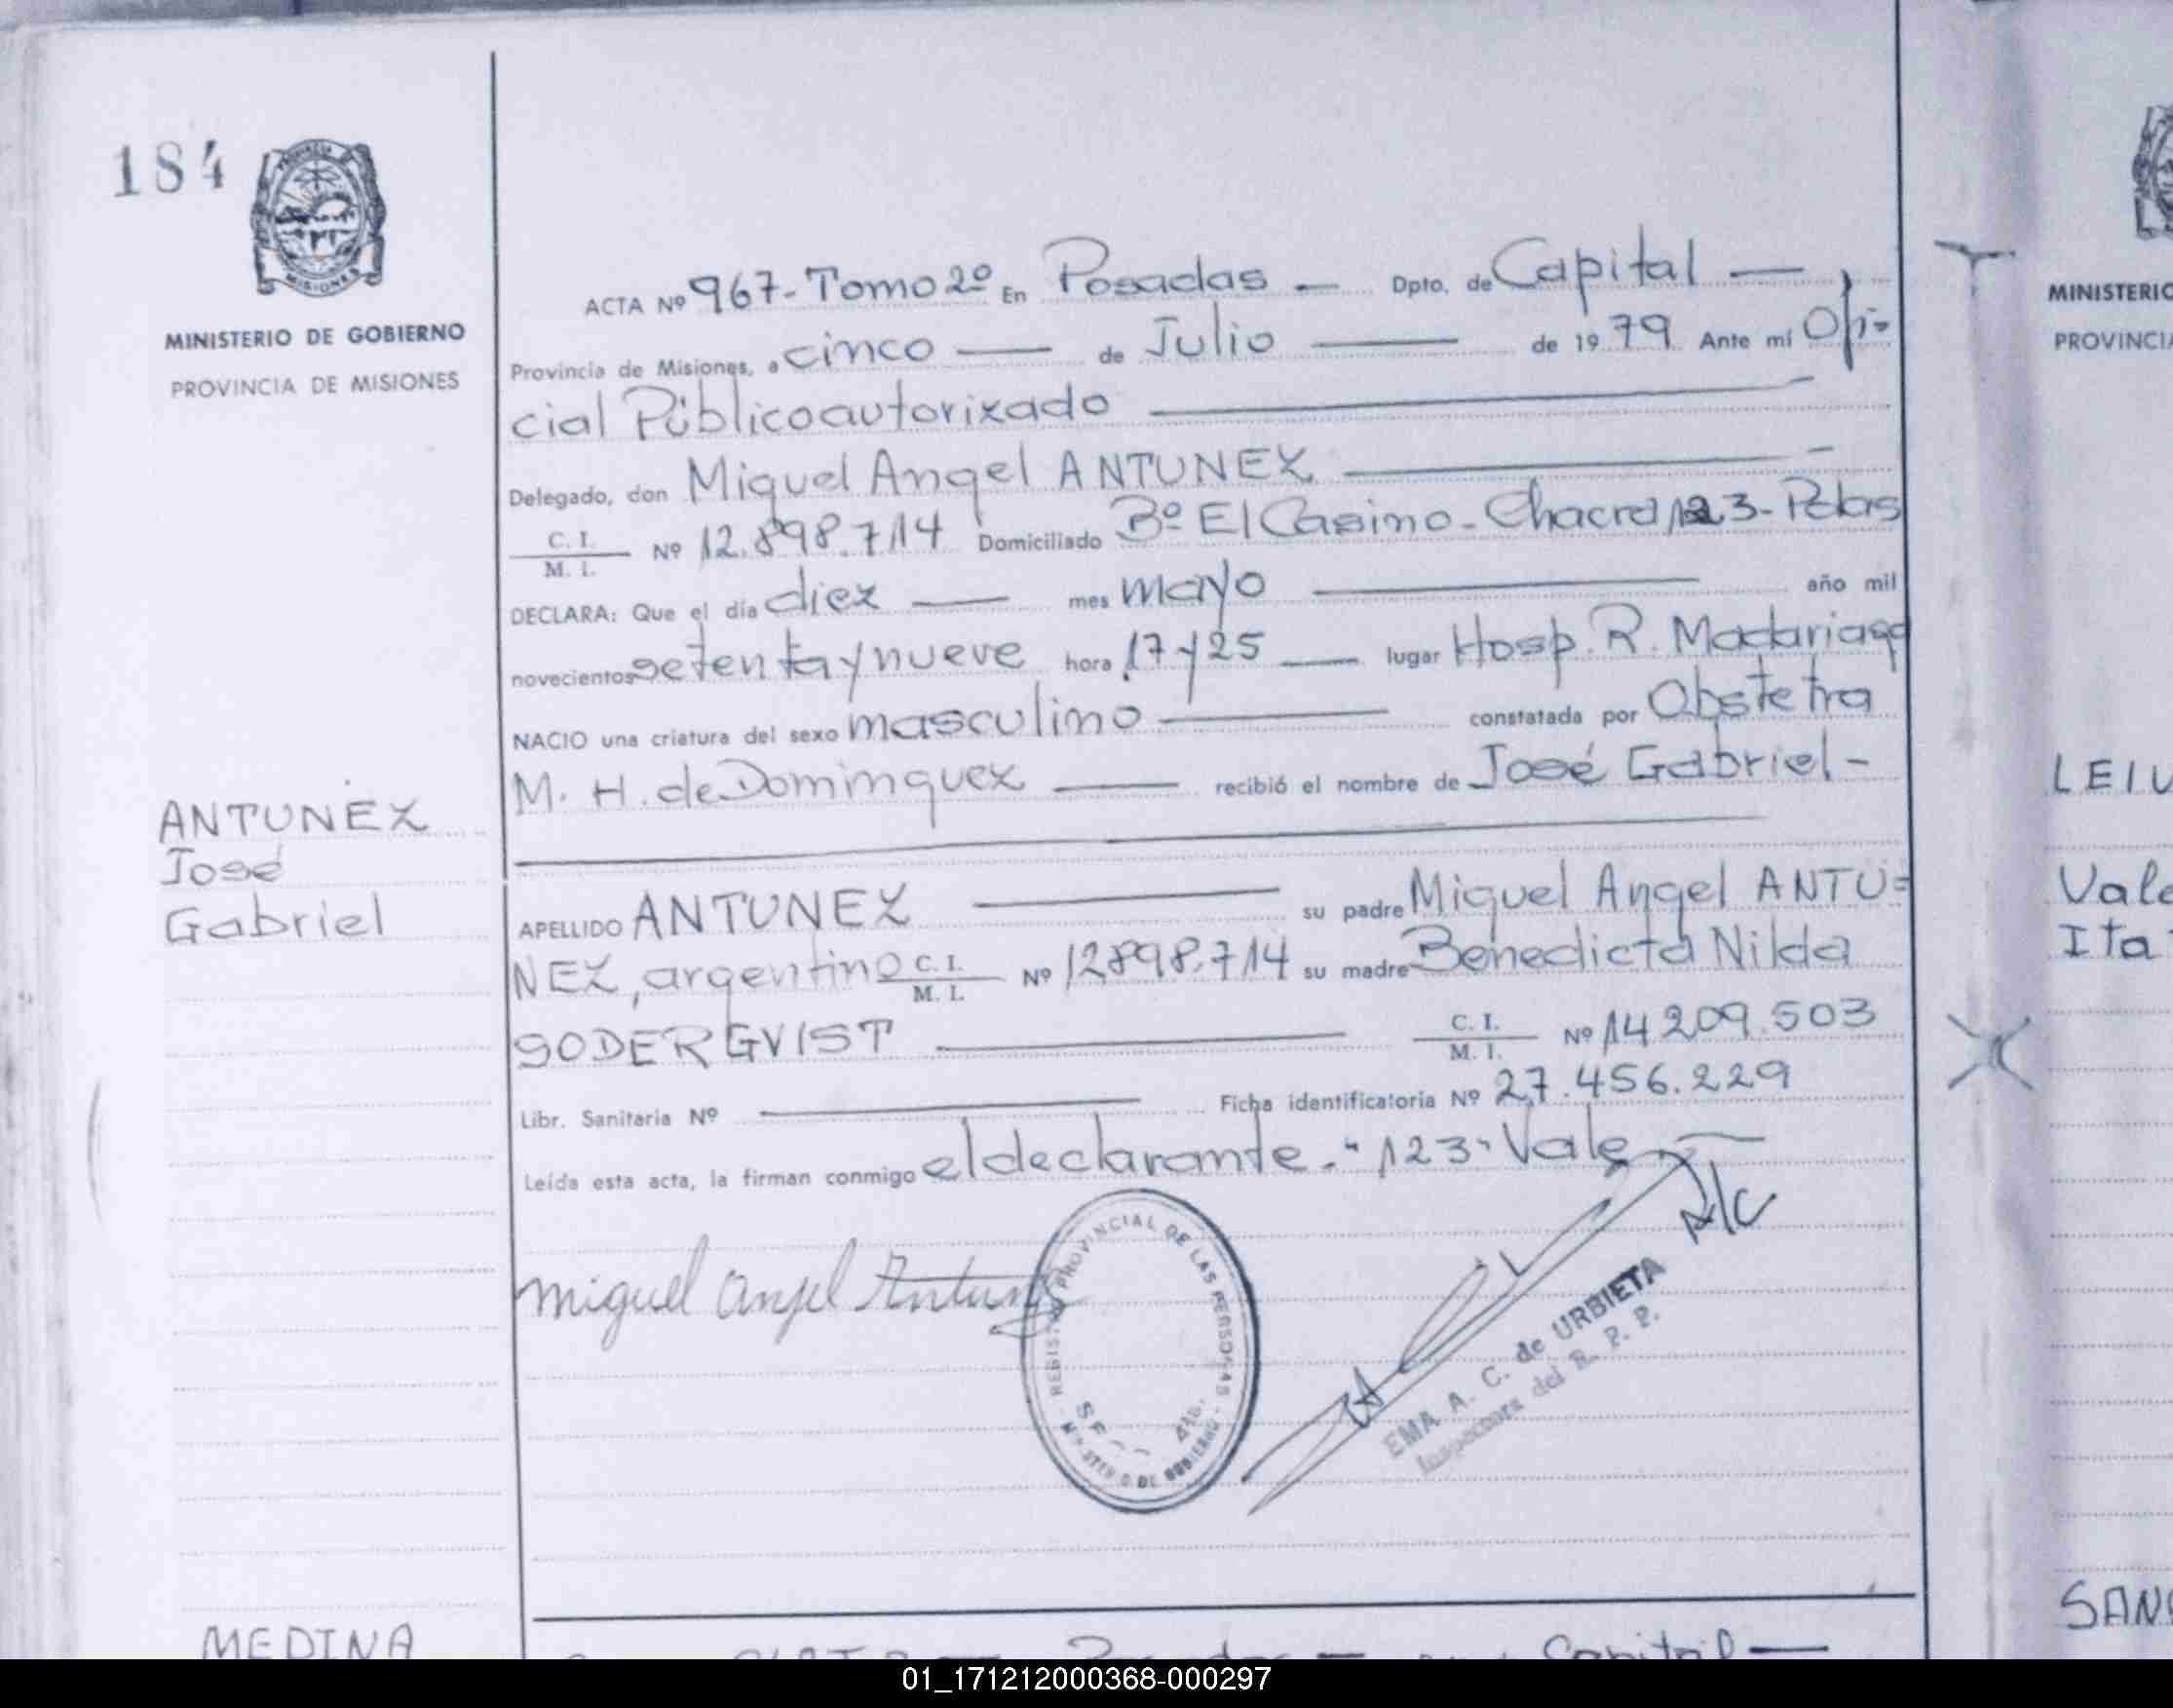 184
MINISTERIO DE GOBIERNO
PROVINCIA DE MISIONES
ACTA Nº 967-Tomo 2º En Posadas — Dpto. de Capital —
Provincia de Misiones, a cinco — de Julio — de 19 79 Ante mí Ofi=
cial Público autorizado —
Delegado, don Miguel Angel ANTUNEZ —
C. I. / M. I. Nº 12.898.714 Domiciliado Bº El Casino - Chacra 123 - Pdas
DECLARA: Que el día diez — mes mayo — año mil
novecientos setenta y nueve hora 17 y 25 — lugar Hosp. R. Madariaga
NACIO una criatura del sexo masculino — constatada por Obstetra
M. H. de Dominguez — recibió el nombre de José Gabriel -
ANTUNEZ
José
Gabriel
APELLIDO ANTUNEZ — su padre Miguel Angel ANTU=
NEZ, argentino C. I. / M. I. Nº 12898.714 su madre Benedicta Nilda
SODERGVIST — C. I. / M. I. Nº 14.209.503
Libr. Sanitaria Nº — Ficha identificatoria Nº 27.456.229
Leída esta acta, la firman conmigo el declarante. - "123" Vale —
miguel anjel Antunez
REGISTRO PROVINCIAL DE LAS PERSONAS
MINISTERIO DE GOBIERNO
A/C
EMA A. C. de URBIETA
Inspectora del R. P. P.
MEDINA
Posadas — Capital —
MINISTERIO
PROVINCIA
LEIV
Vale
Ita
SAN
01_171212000368-000297